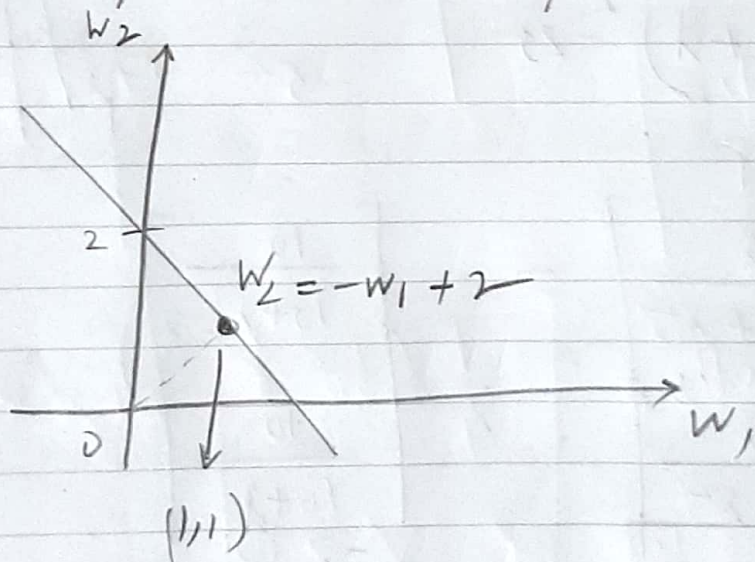 W₂
2
W₂ = -W₁ + 2
0
W₁
(1,1)